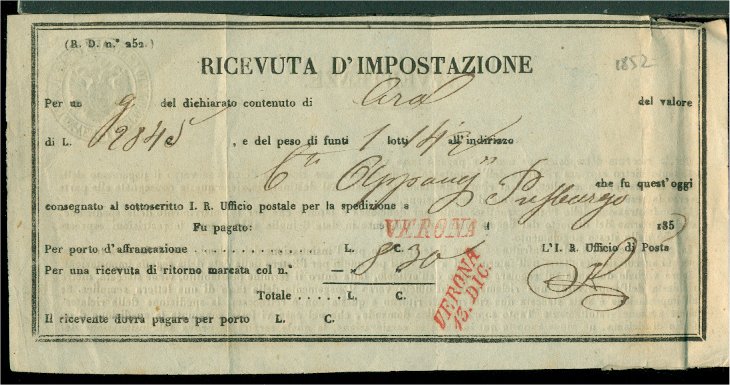 (R. D. n.° 252.)
RICEVUTA D'IMPOSTAZIONE
1852
Per un g del dichiarato contenuto di del valore
di L. 2845 , e del peso di funti 1 lotti 14 all'indirizzo
Cte Appony che fu quest'oggi
consegnato al sottoscritto I. R. Ufficio postale per la spedizione a Presburgo
Fu pagato: VERONA 185
Per porto d'affrancazione . . . . . . . . . . . . . L. C. L'I. R. Ufficio di Posta
Per una ricevuta di ritorno marcata col n.° — 8 30
VERONA
13. DIC.
Totale . . . . . L. C.
Il ricevente dovrà pagare per porto L. C.